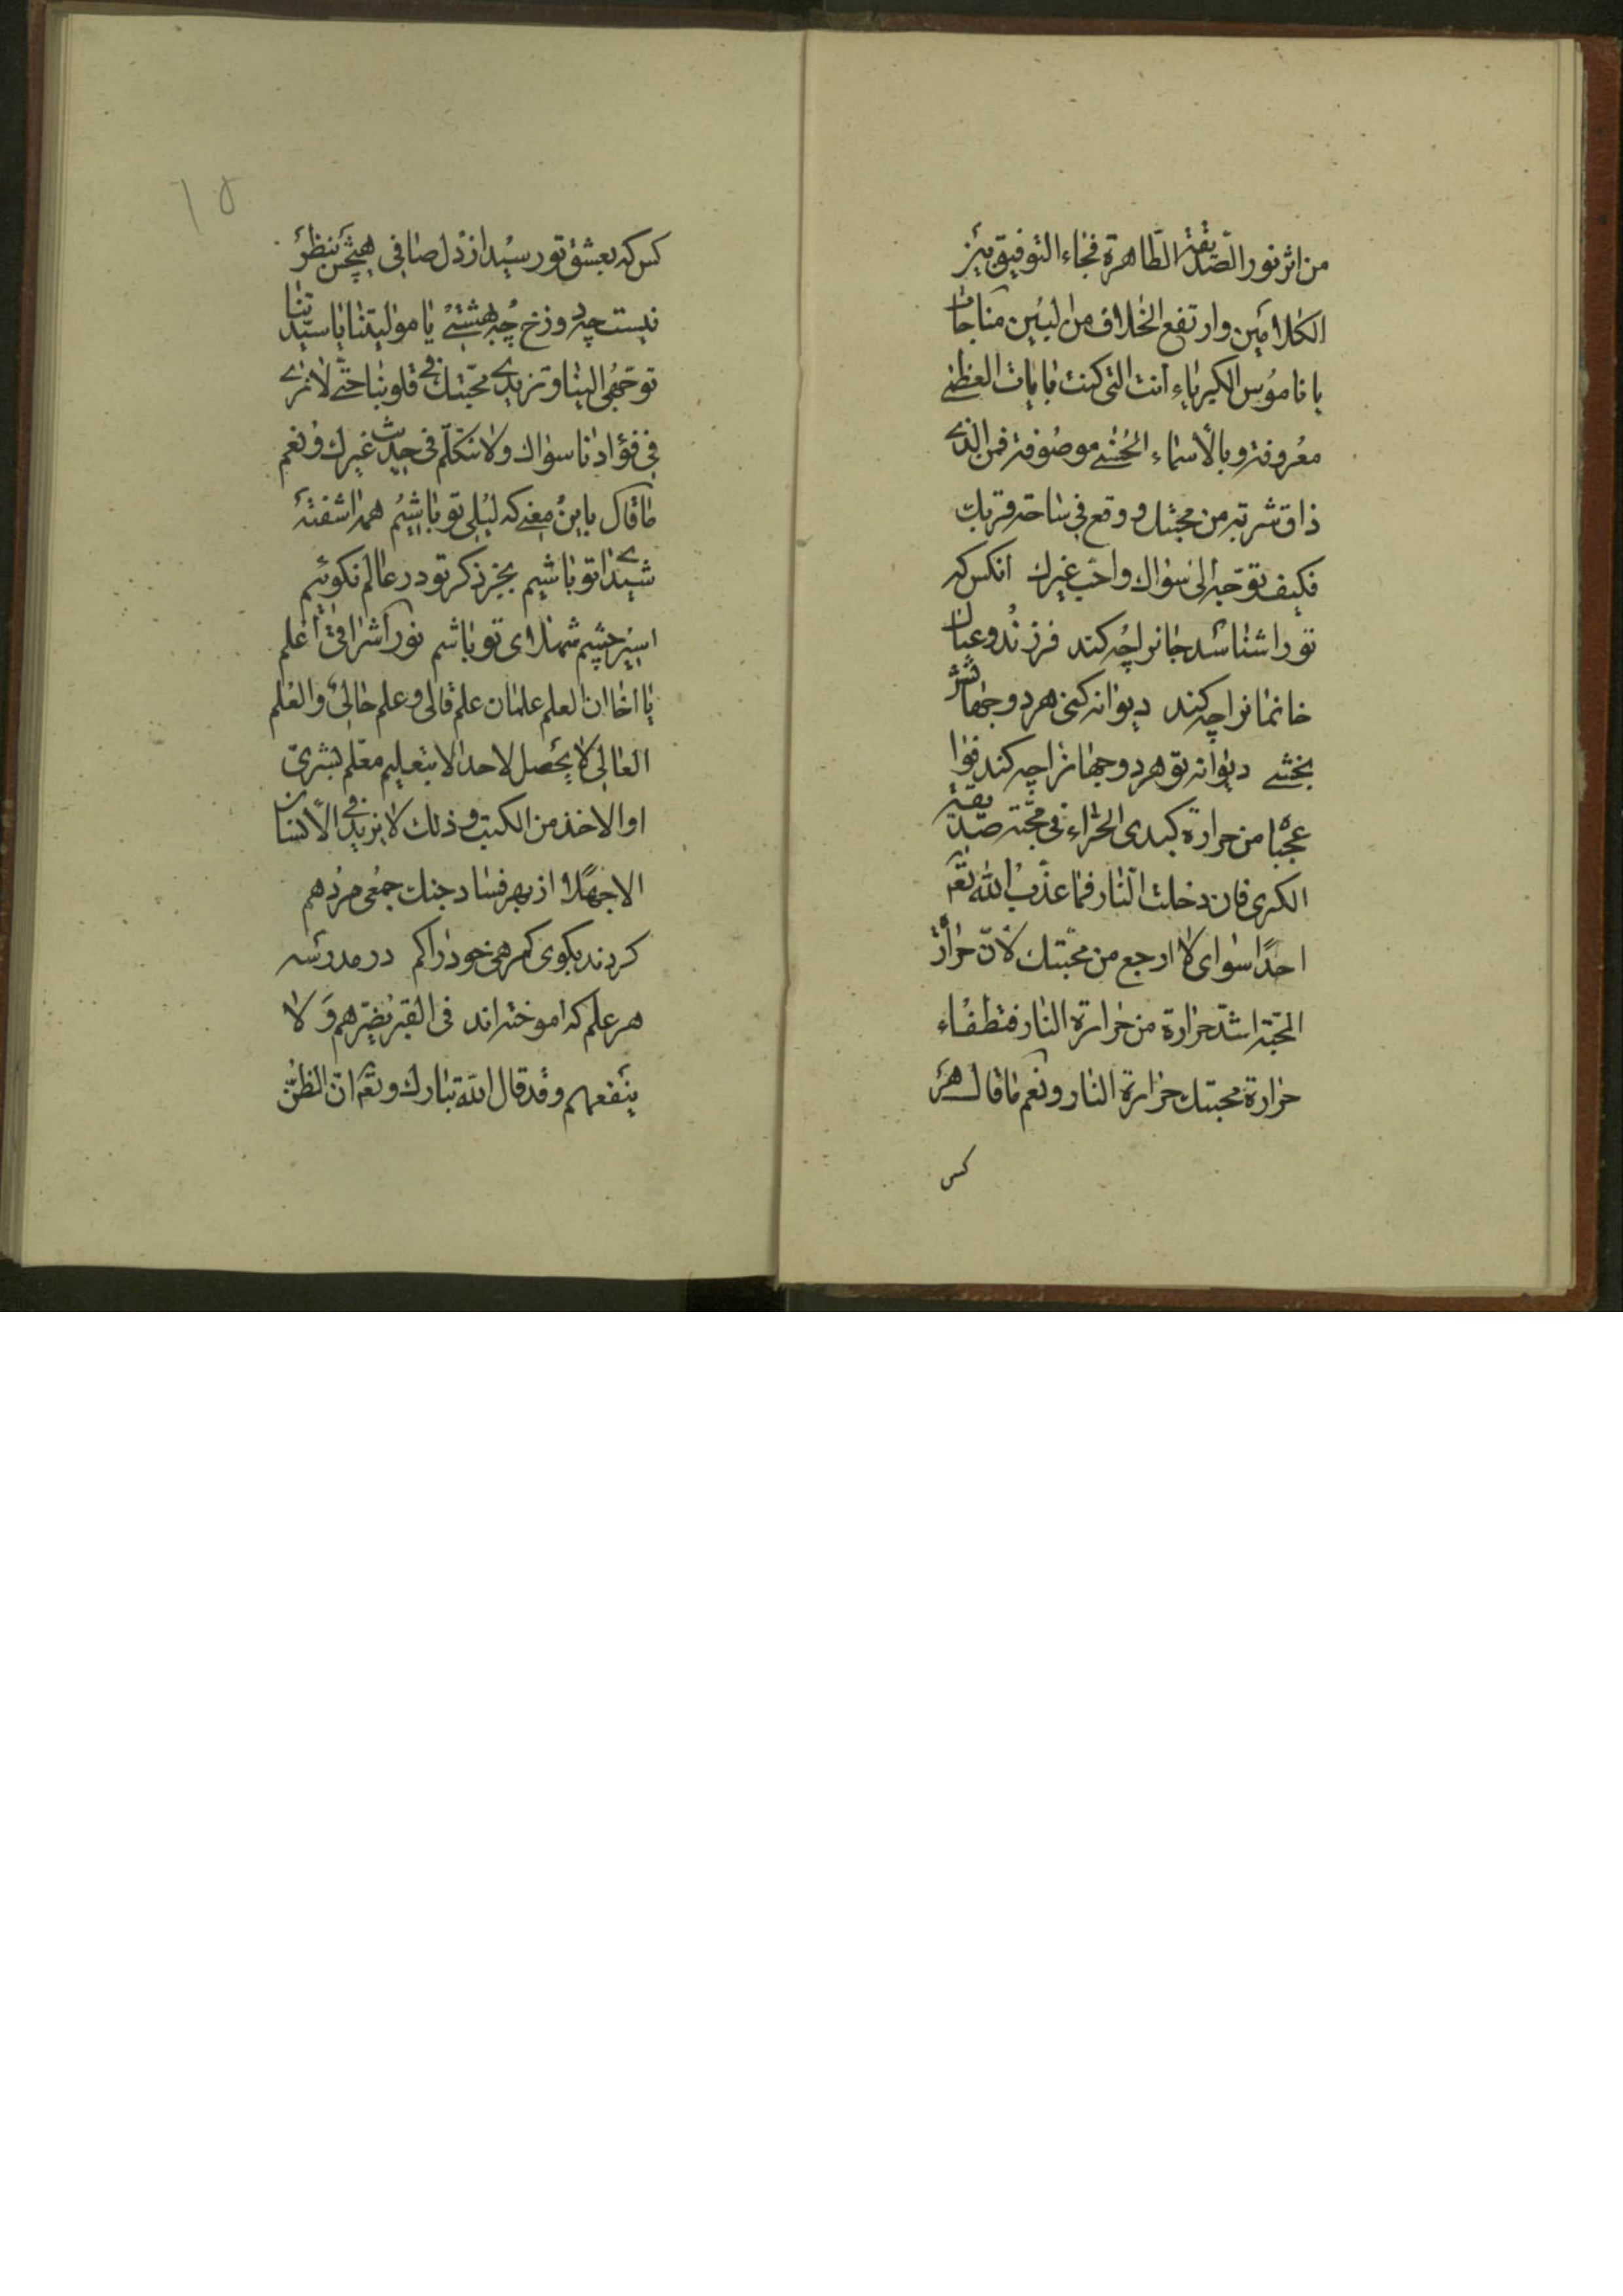 من اثر نور الصّدّیقة الطّاهرة فجاء التوفیق بین
الکلامین وارتفع الخلاف من البین مناجات
یا ناموس الکبریاء انت التی کنت بایات العظمی
معروفة وبالأسماء الحسنی موصوفة فمن الذی
ذاق شربة من محبتك ووقع فی ساحة قربك
فکیف توجّه الی سواك واحبّ غیرك انکس که
تورا شناسد جانرا چه کند فرزند وعیال
خانمانرا چه کند دیوانه کنی هر دو جهانش
بخشی دیوانه تو هر دو جهانرا چه کند فوا
عجبا من حرارة کبدی الحرّاء فی محبّة صدّیقة
الکبری فان دخلت النّار فما عذّب اللّه تعم
احدًا سوای لا ارجع من محبّتك لأنّ حرارة
المحبّة اشدّ حرارة من حرارة النار فتطفاء
حرارة محبتك حرارة النار ونعم ما قال هر
کس
۱۵
کس که بعشق تو رسید از دل صافی هیچش بنظر
نیست چه دوزخ چه بهشتی یا مولیتنا یا سیّدتنا
توجّهی الینا وتزیدی محبّتك فی قلوبنا حتّی لا نری
فی فؤادنا سواك ولا نتکلّم فی حدیث غیرك ونعم
ما قال باین معنی که لیلی تو باشیم همه اشفتهٔ
شیدا تو باشیم بجز ذکر تو در عالم نکوئیم
اسیر چشم شهلای تو باشم نور اشراقیّ اعلم
یا اخا ان العلم علمان علم قالی وعلم حالی والعلم
القالی لا یحصل لاحد الا بتعلیم معلّم بشریّ
او الاخذ من الکتب وذلك لا یزید فی الأنسان
الا جهلًا از بهر فساد جنك جمعی مردم
کردند بکوی کمرهی خود را کم در مدرسه
هر علم که اموخته اند فی القبر یضرّهم ولا
ینفعهم وقد قال اللّه تبارك وتعم انّ الظنّ